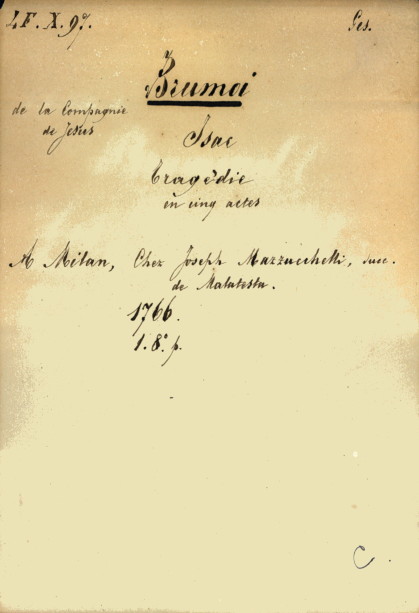 LF. X. 97.
Ges.
Brumoi
de la Compagnie
de Jesus
Isac
Tragèdie
en cinq actes
A Milan, Chez Joseph Mazzucchelli, succ.
de Malatesta.
1766.
1. 8.° p.
C.